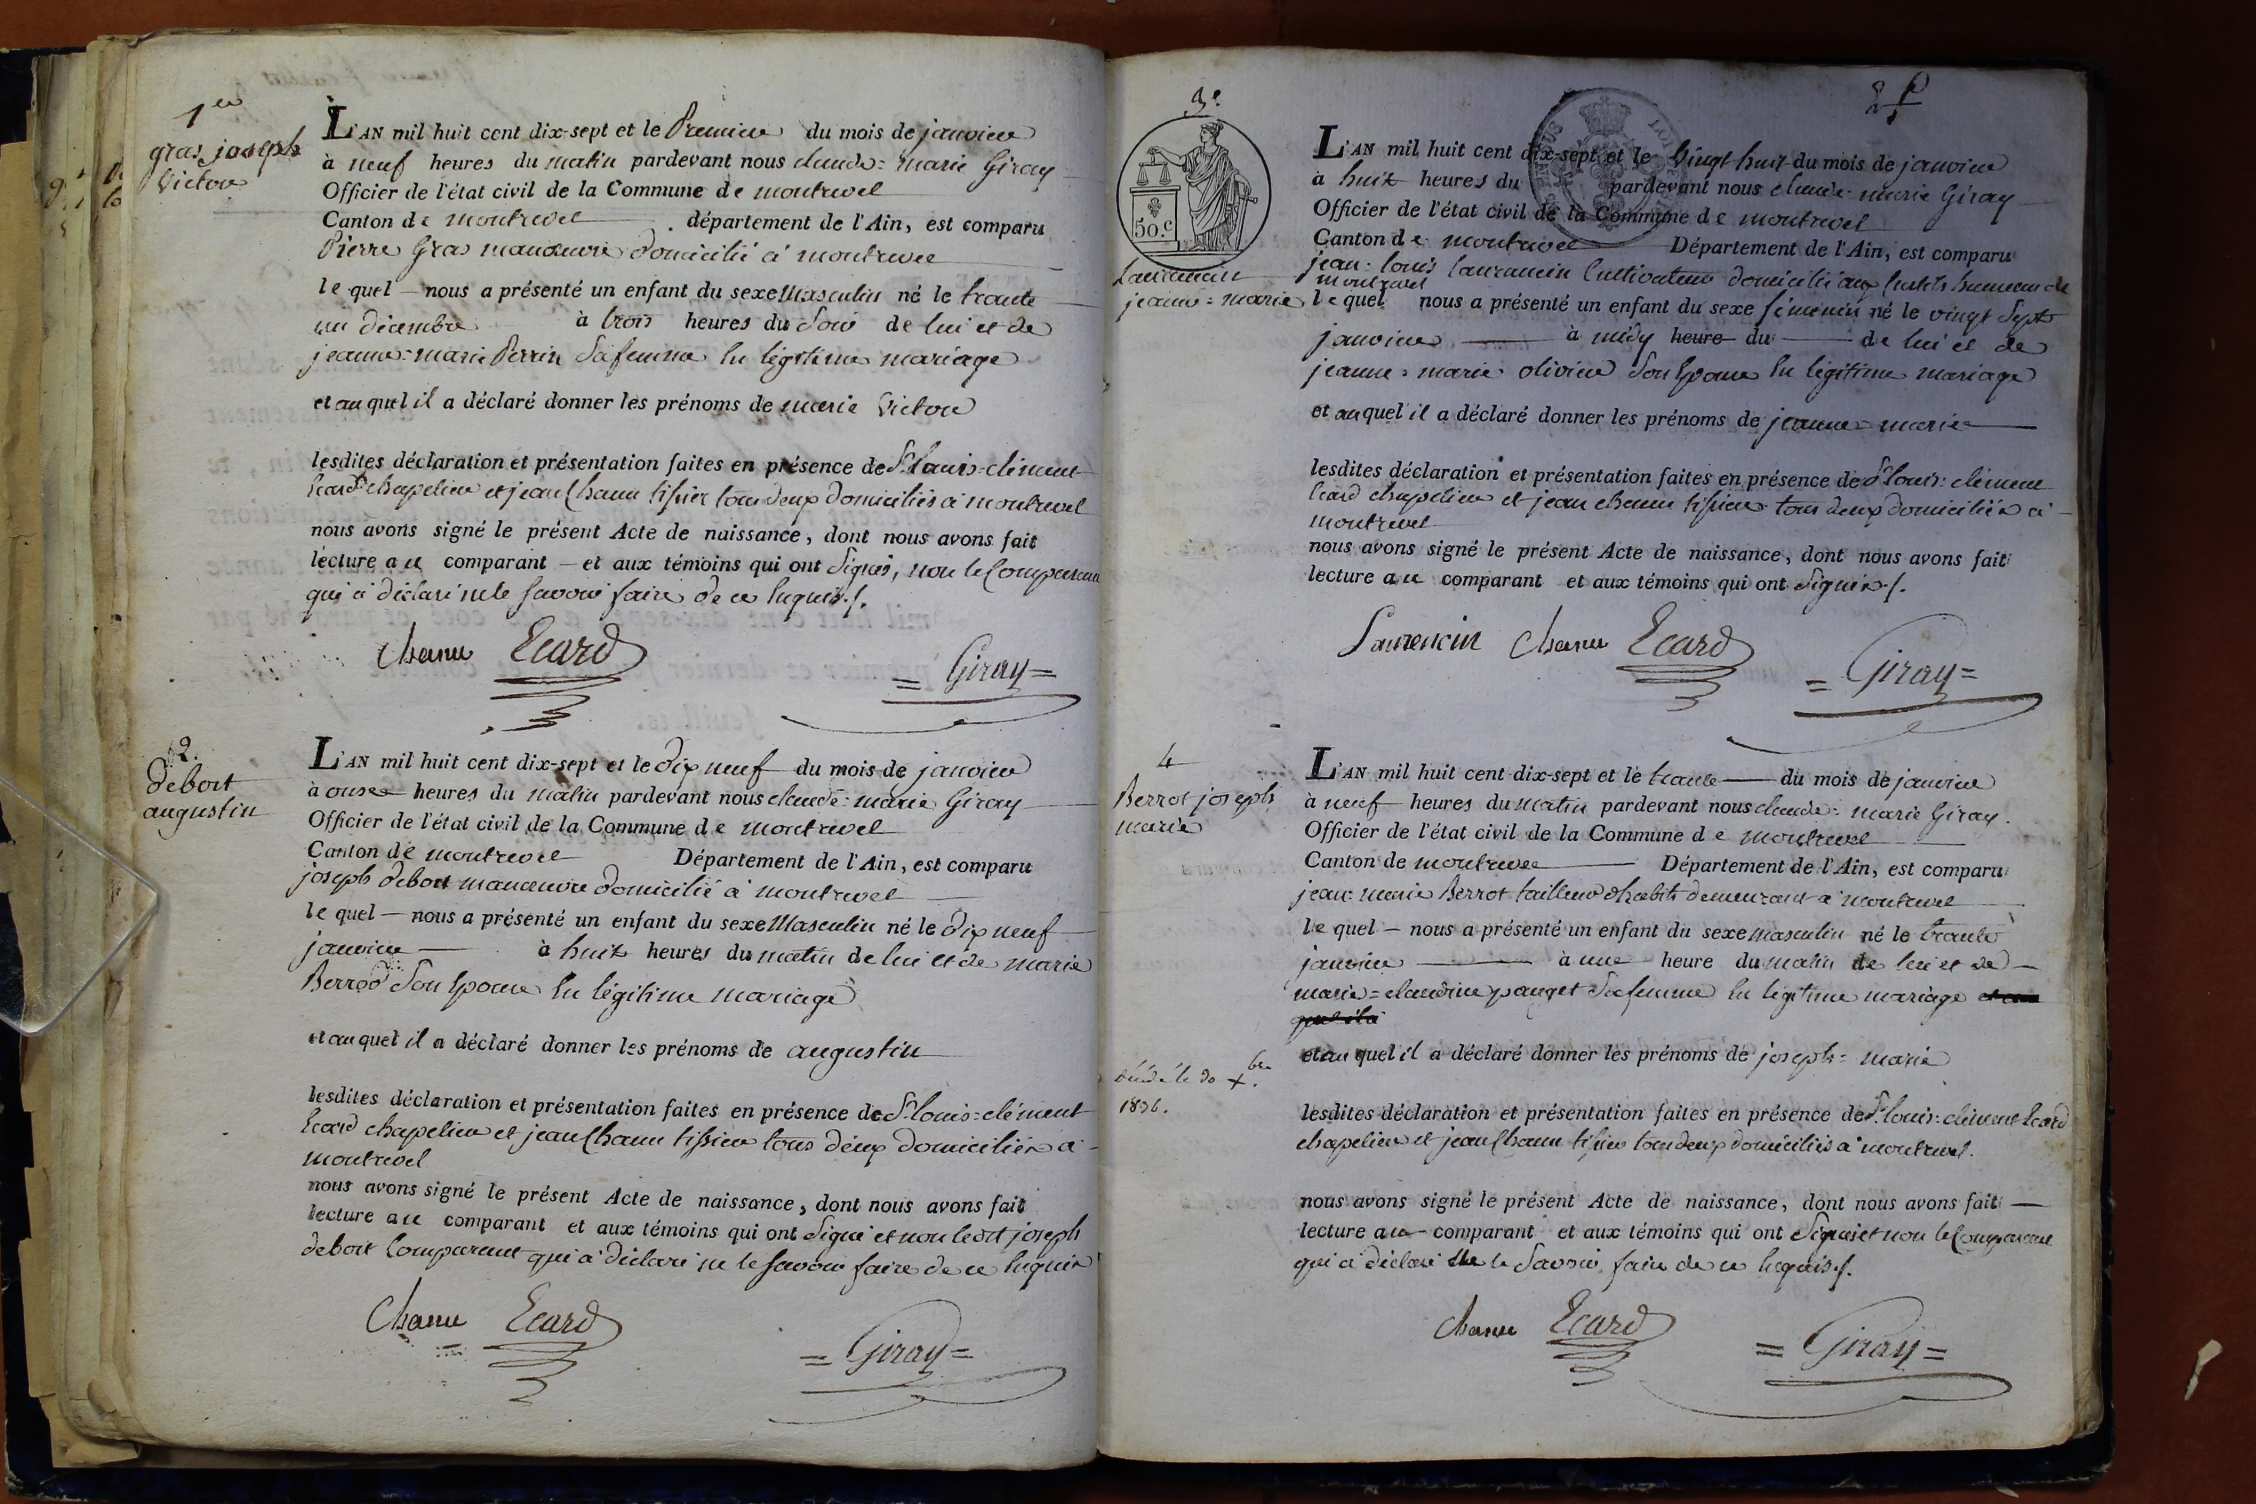 1er
gras joseph
Victor
L'AN mil huit cent dix-sept et le Premier du mois de janvier
à neuf heures du matin pardevant nous claude=marie Giray
Officier de l'état civil de la Commune de montrevel
Canton de montrevel département de l'Ain, est comparu
Pierre Gras manœuvre domicilié à montrevel
le quel nous a présenté un enfant du sexe Masculin né le trante
un décembre à trois heures du soir de lui et de
jeanne=marie Perrin Sa femme en légitime mariage
et au quel il a déclaré donner les prénoms de marie Victor
lesdites déclaration et présentation faites en présence de Sr Louis=clément
Ecard chapelier et jean Chanu tissier tous deux domiciliés à montrevel
nous avons signé le présent Acte de naissance, dont nous avons fait
lecture au comparant et aux témoins qui ont Signés, non le Comparant
qui a déclaré ne le savoir faire de ce Enquis./.
Chanu Ecard =Giray=
2.
debort
augustin
L'AN mil huit cent dix-sept et le dix neuf du mois de janvier
à onse heures du matin pardevant nous claude=marie Giray
Officier de l'état civil de la Commune de montrevel
Canton de montrevel Département de l'Ain, est comparu
joseph debort manœuvre domicilié à montrevel
le quel nous a présenté un enfant du sexe Masculin né le dix neuf
janvier à huit heures du matin de lui et de marie
Berrod Son Epouse En légitime mariage
et au quel il a déclaré donner les prénoms de augustin
lesdites déclaration et présentation faites en présence de Sr louis=clément
Ecard chapelier et jean Chanu tissier tous deux domiciliés à
montrevel
nous avons signé le présent Acte de naissance, dont nous avons fait
lecture au comparant et aux témoins qui ont Signé et non ledt joseph
debort Comparant qui a déclaré ne le savoir faire de ce Enquis
Chanu Ecard =Giray=
2
3e
50.c
Laurencin
jeanne=marie
L'AN mil huit cent dix-sept et le Vingt huit du mois de janvier
à huit heures du pardevant nous claude=marie Giray
Officier de l'état civil de la Commune de montrevel
Canton de montrevel Département de l'Ain, est comparu
jean=louis laurancin Cultivateur domicilié aux hameau de
montrevel
le quel nous a présenté un enfant du sexe féminin né le vingt Sept
janvier à midy heure du de lui et de
jeanne=marie olivier Son Epouse En légitime mariage
et au quel il a déclaré donner les prénoms de jeanne=marie
lesdites déclaration et présentation faites en présence de Sr louis=clément
Ecard chapelier et jean chanu tissier tous deux domiciliés à
montrevel
nous avons signé le présent Acte de naissance, dont nous avons fait
lecture au comparant et aux témoins qui ont Signés./.
Laurencin Chanu Ecard =Giray=
4
Berrot joseph
marie
L'AN mil huit cent dix-sept et le trante du mois de janvier
à neuf heures du matin pardevant nous claude=marie Giray.
Officier de l'état civil de la Commune de montrevel
Canton de montrevel Département de l'Ain, est comparu
jean=marie Berrot tailleur d'habits demeurant à montrevel
le quel nous a présenté un enfant du sexe masculin né le trante
janvier à une heure du matin de lui et de
marie=claudine pauget Sa femme En légitime mariage
et au quel il a déclaré donner les prénoms de joseph=marie
décédé le 30 Xbre
1896.
lesdites déclaration et présentation faites en présence de Sr louis=clément Ecard
chapelier et jean Chanu tissier tous deux domiciliés à montrevel.
nous avons signé le présent Acte de naissance, dont nous avons fait
lecture au comparant et aux témoins qui ont Signés et non le Comparant
qui a déclaré ne le Savoir faire de ce Enquis./.
Chanu Ecard =Giray=